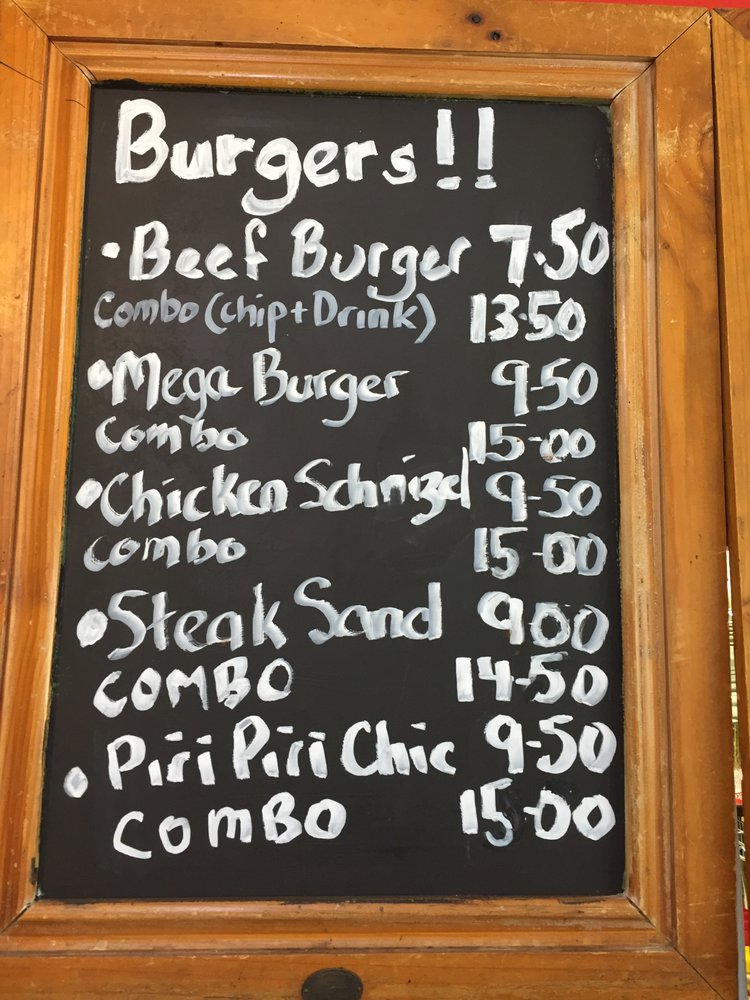 Burgers!!
• Beef Burger 7.50
Combo (chip + Drink) 13.50
• Mega Burger 9-50
Combo 15-00
• Chicken Schnizel 9-50
Combo 15-00
• Steak Sand 9.00
COMBO 14-50
• Piri Piri Chic 9-50
COMBO 15-00